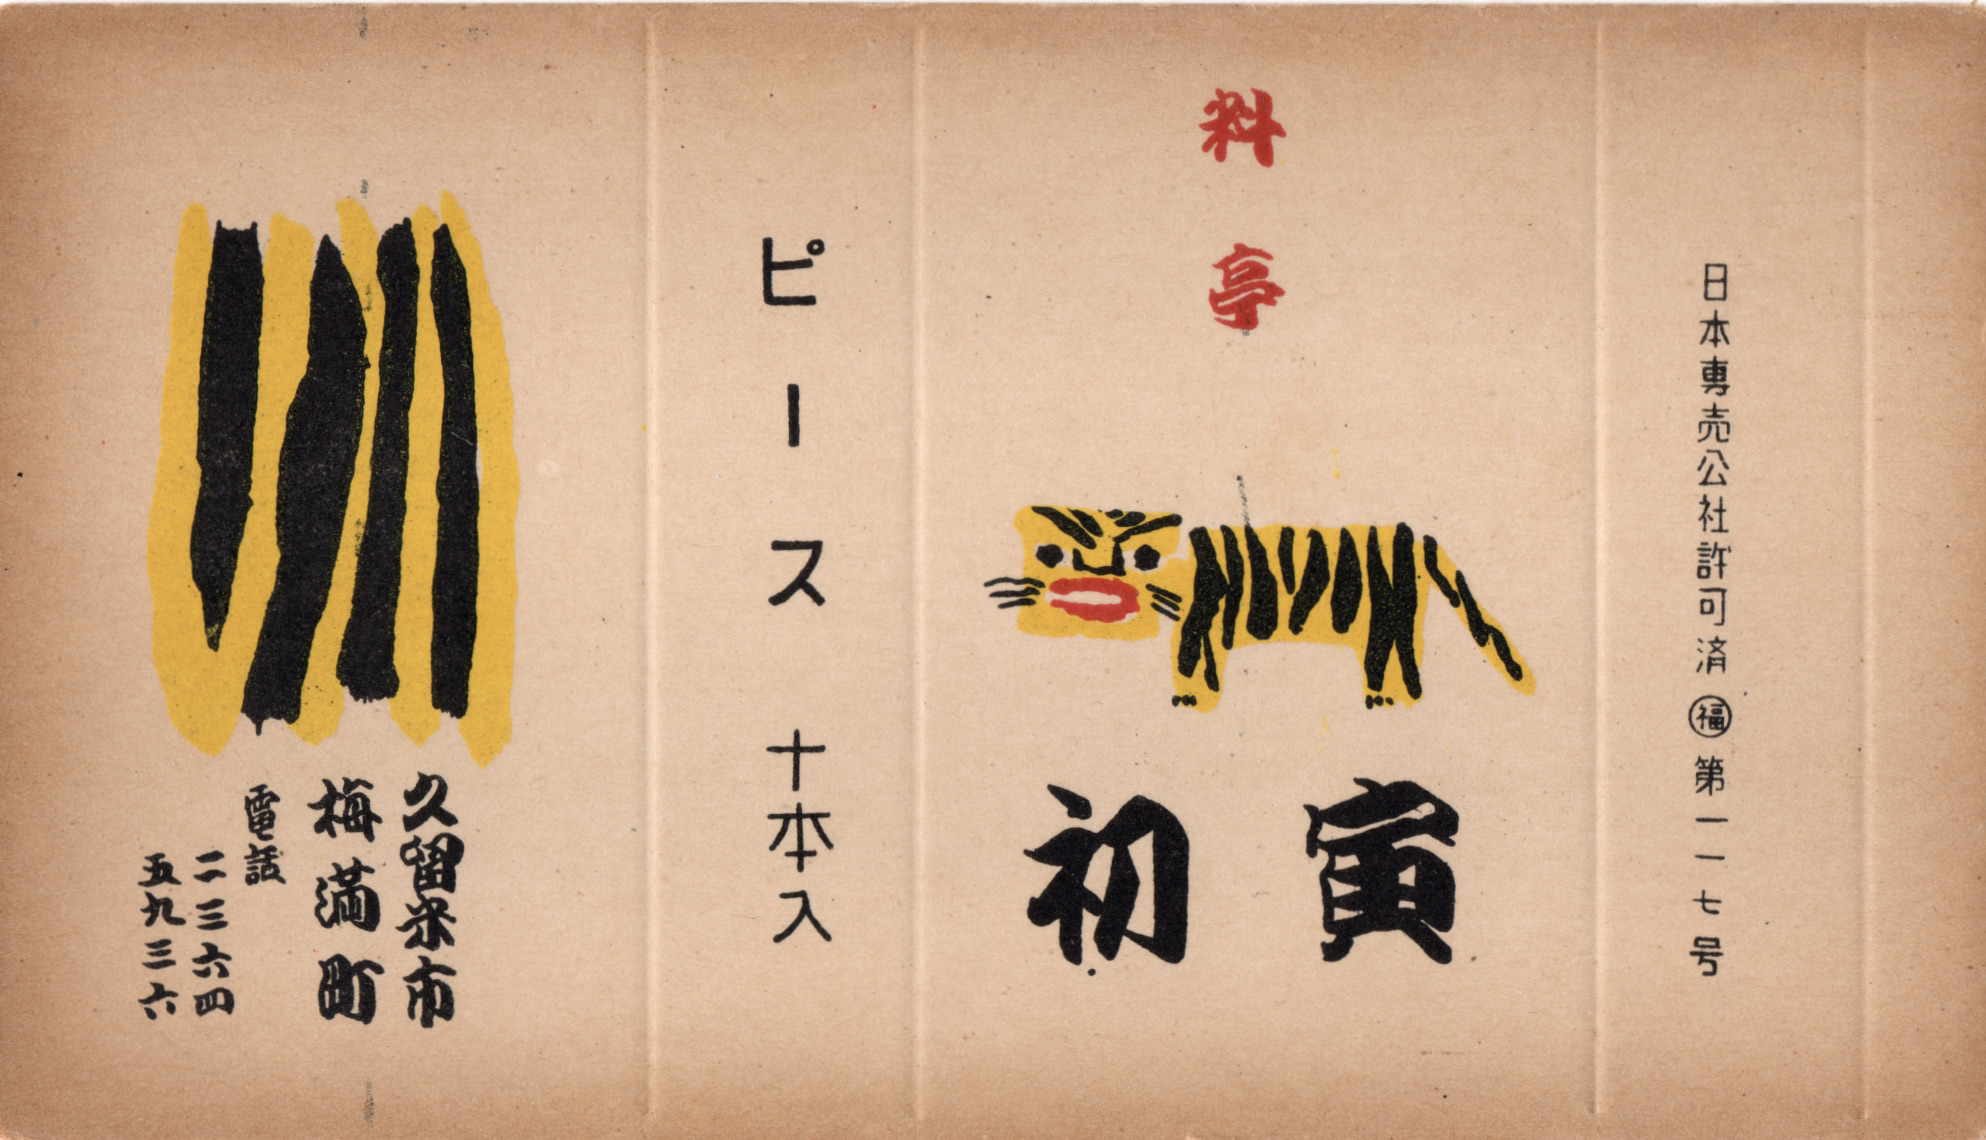 日本専売公社許可済㊝第一一七号
料亭
初寅
ピース 十本入
久留米市
梅満町
電話
二三六四
五九三六